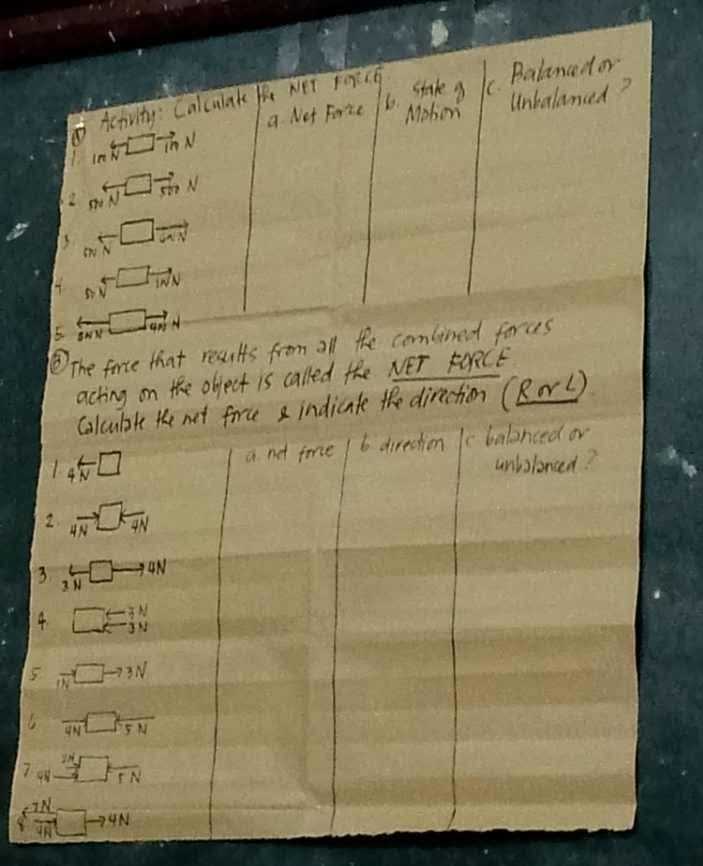 ① Activity: Calculate the NET FORCE
a. Net Force
b. State of Motion
c. Balanced or Unbalanced?
1. 10N 10 N
2. 500 N
3.
4.
5.
② The force that results from all the combined forces
acting on the object is called the NET FORCE.
Calculate the net force & indicate the direction (R or L).
a. net force
b. direction
c. balanced or unbalanced?
1. 4N
2. 4N 4N
3. 3N 4N
4. 3N
3N
5. 1N 3N
6. 4N 5N
7. 4N 5N
8. 7N
4N 4N